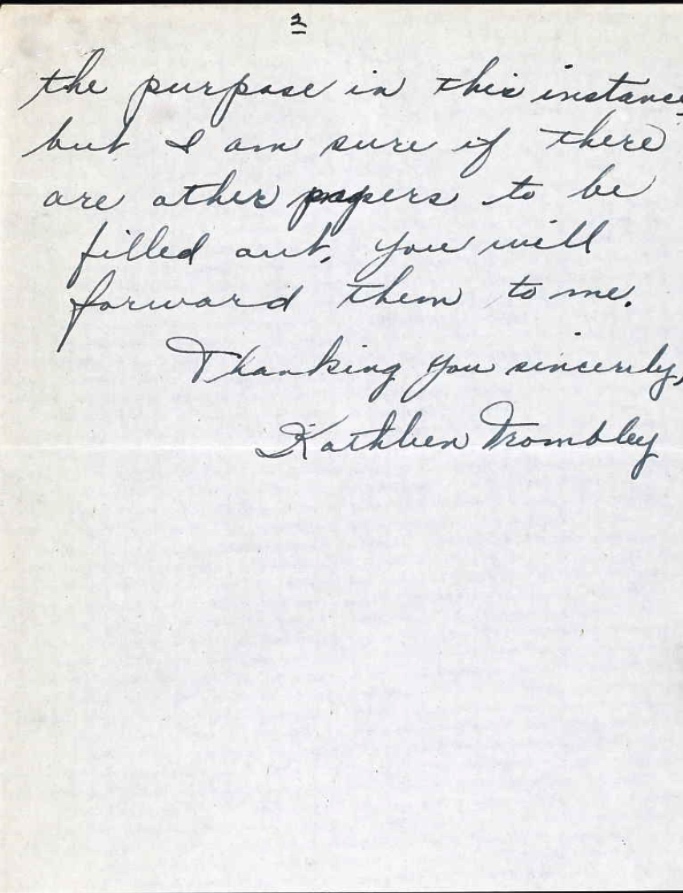 2
the purpose in this instance
but I am sure if there
are other papers to be
filled out, you will
forward them to me.
Thanking you sincerely,
Kathleen Trombley